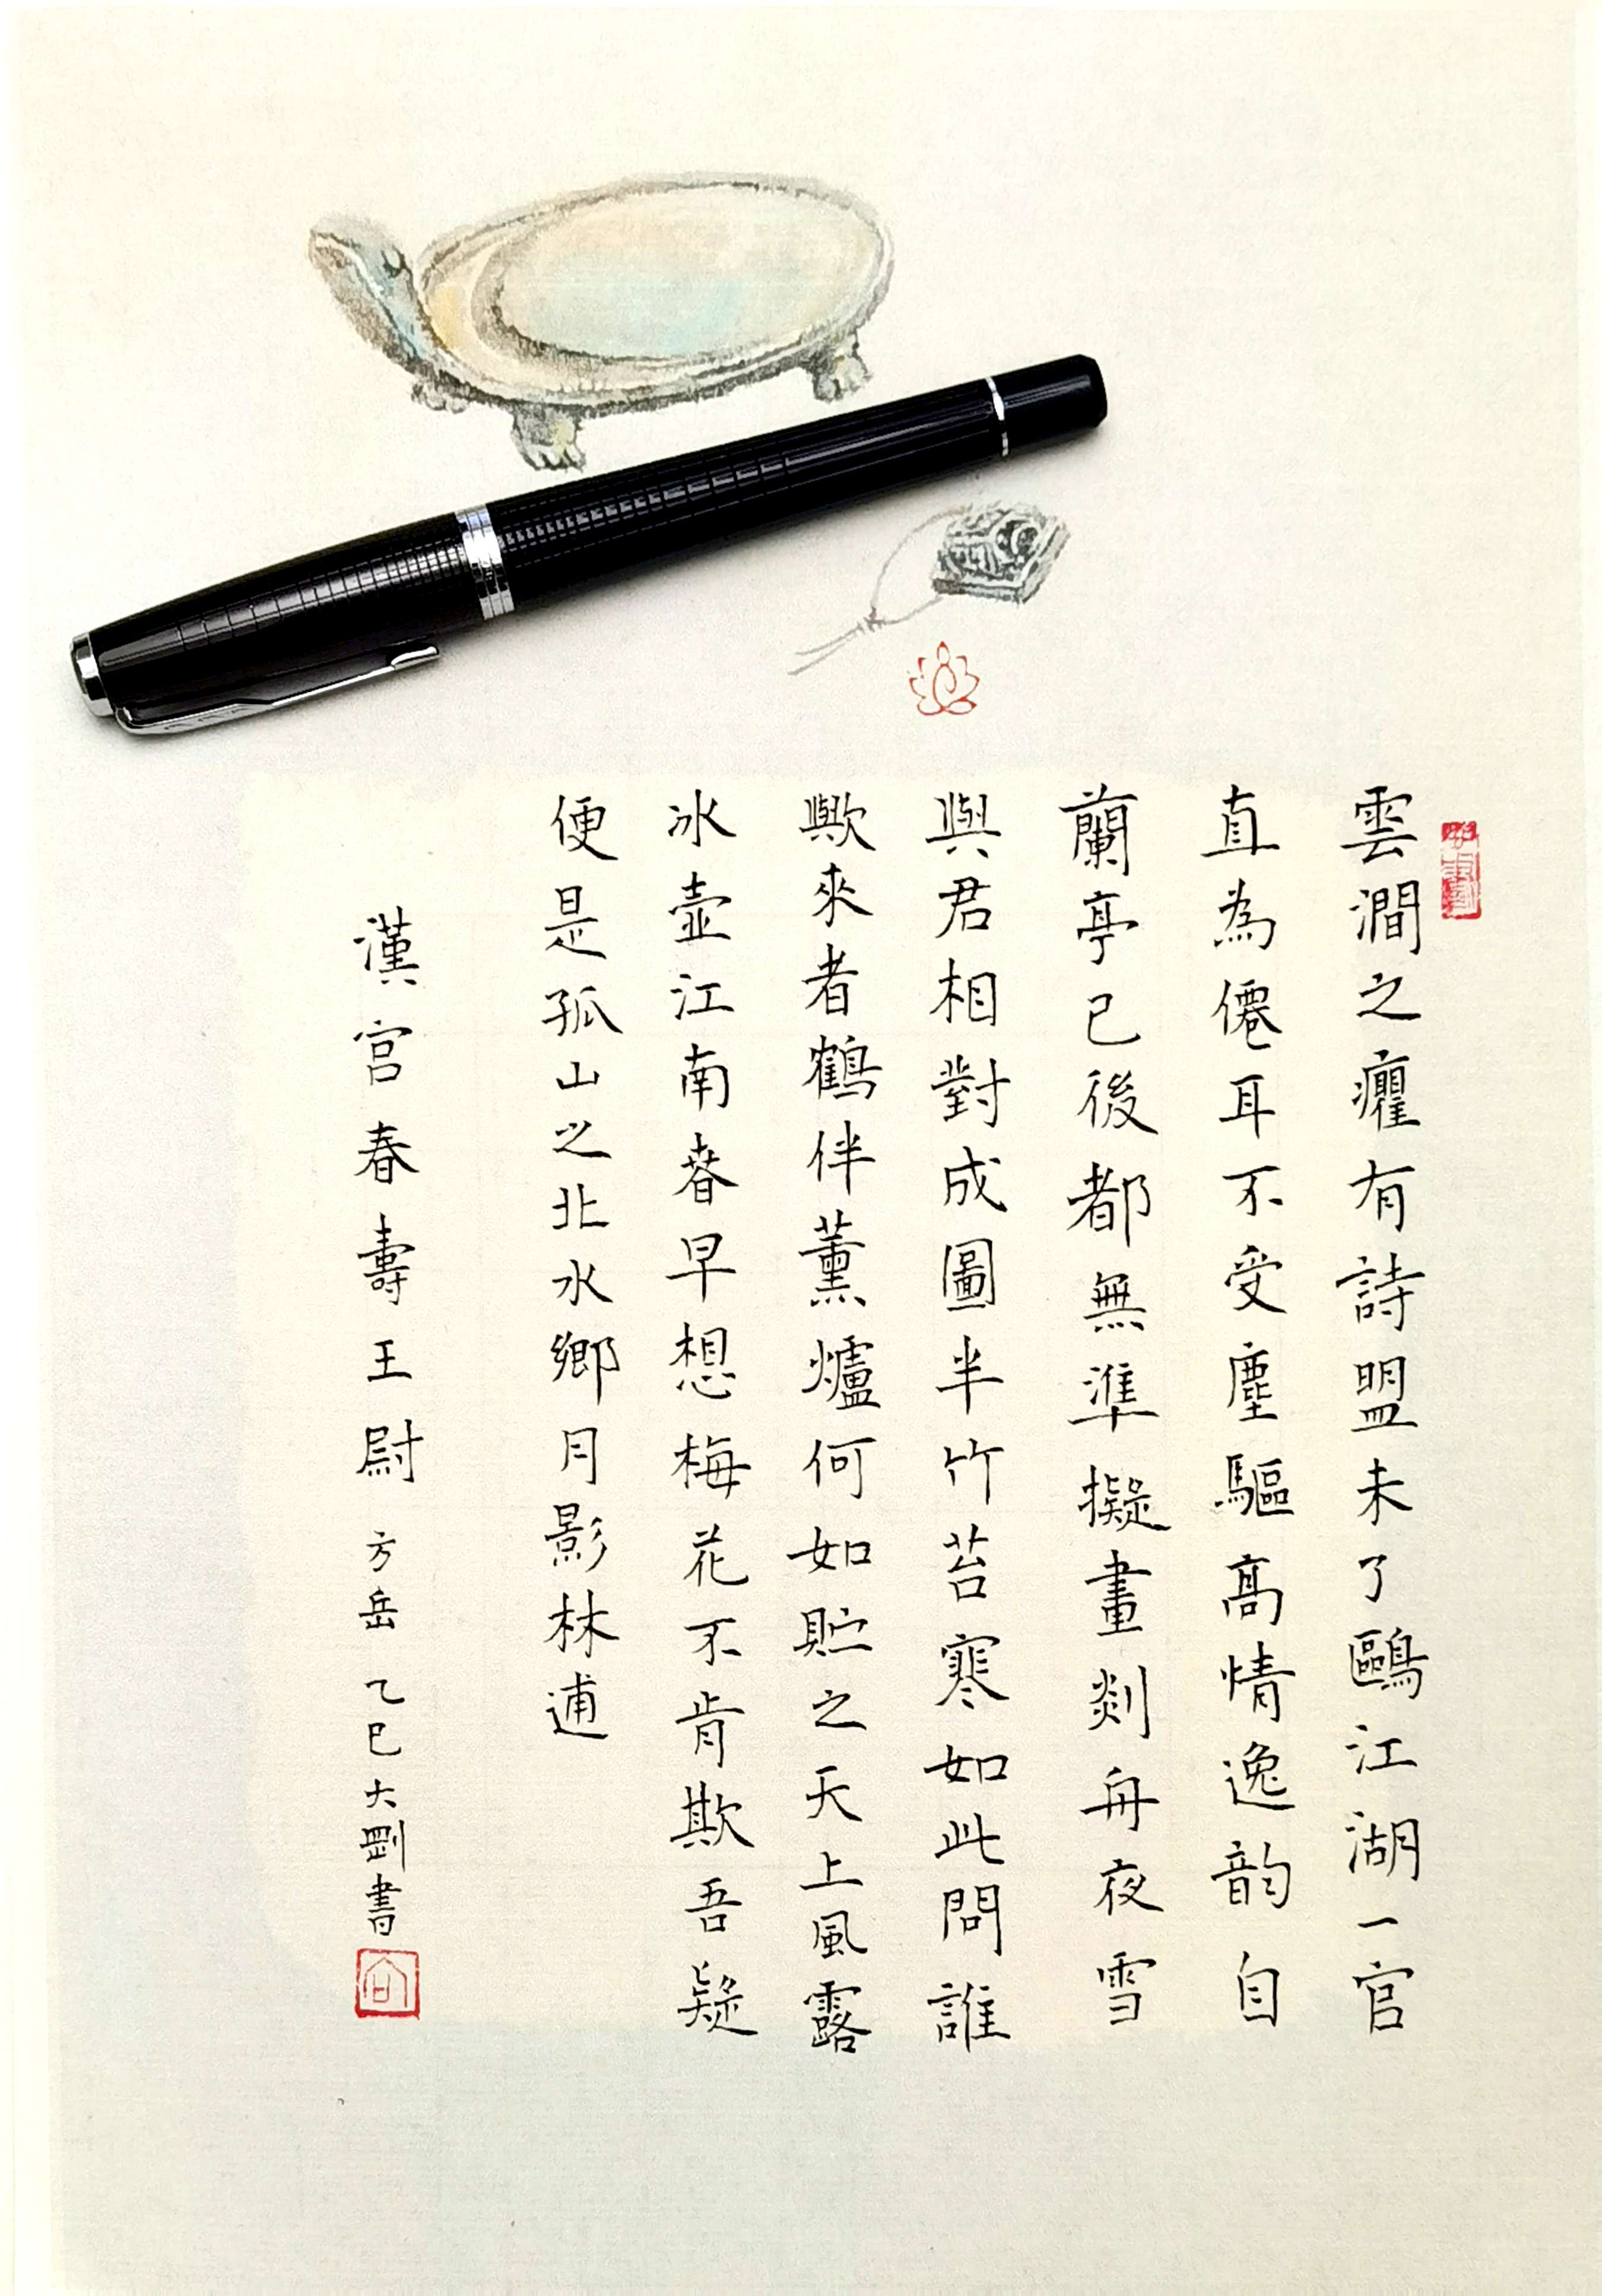 雲澗之癯有詩盟未了鷗江湖一官
直為僊耳不受塵驅高情逸韵自
蘭亭已後都無準擬畫剡舟夜雪
與君相對成圖半竹苔寒如此問誰
歟來者鶴伴薰爐何如貯之天上風露
冰壺江南春早想梅花不肯欺吾疑
便是孤山之北水鄉月影林逋
漢宮春壽王尉 方岳 乙巳大剛書